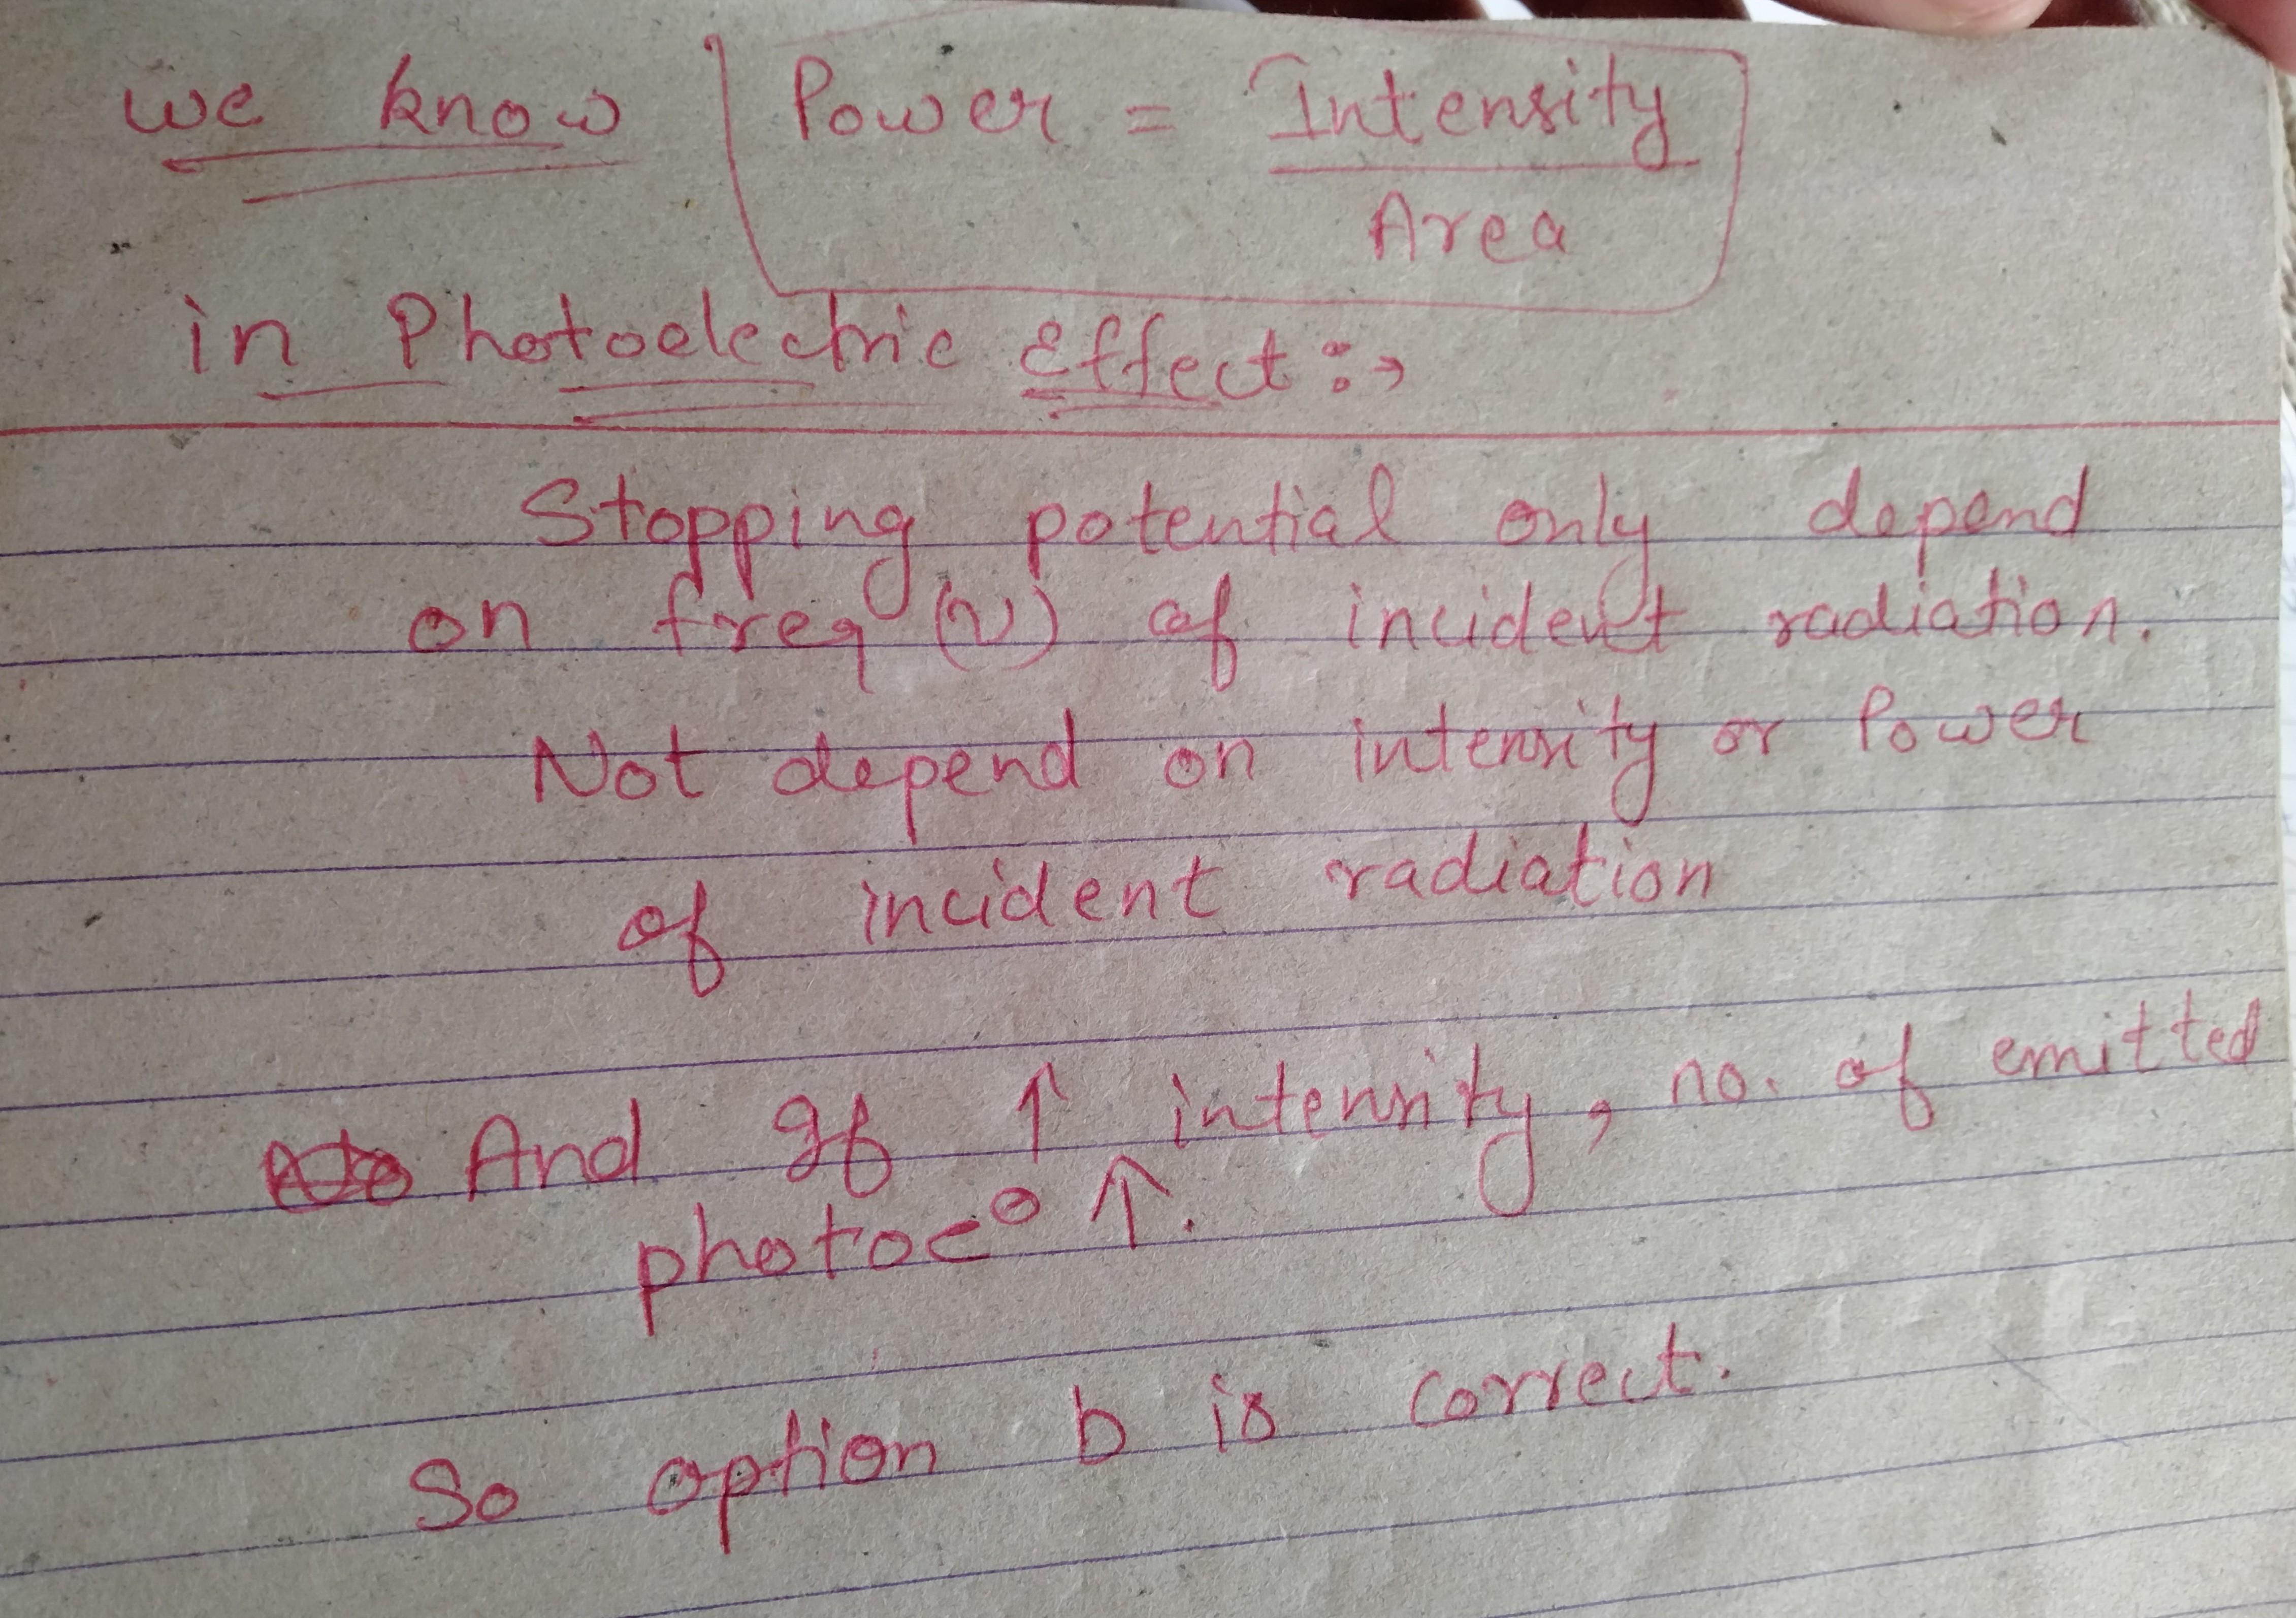 we know Power = Intensity / Area
in Photoelectric Effect :→
Stopping potential only depend
on freq (ν) of incident radiation.
Not depend on intensity or Power
of incident radiation
And If ↑ intensity, no. of emitted
photoe⁰ ↑.
So option b is correct.